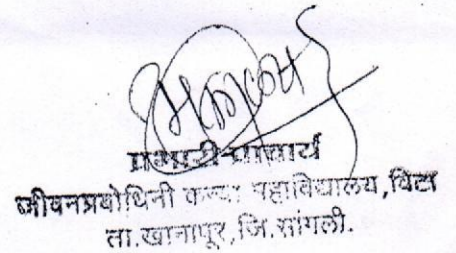 प्रभारी प्राचार्य
जीवनप्रबोधिनी कन्या महाविद्यालय,विटा
ता.खानापूर,जि.सांगली.